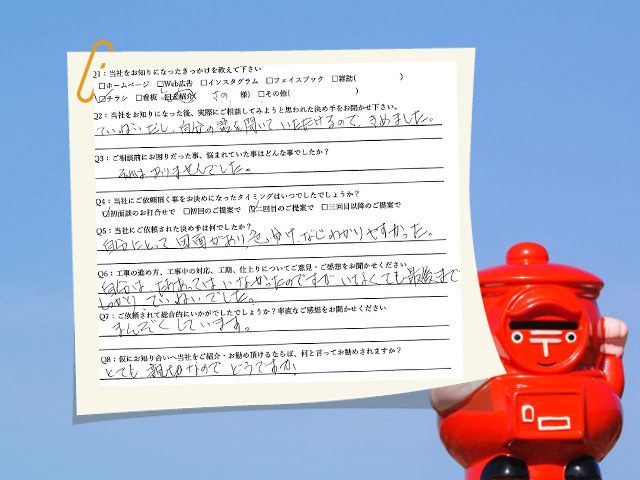 Q1：当社をお知りになったきっかけを教えて下さい
□ホームページ □Web広告 □インスタグラム □フェイスブック □雑誌( )
☑チラシ □看板 □ご紹介( 様) □その他( )
Q2：当社をお知りになった後、実際にご相談してみようと思われた決め手をお聞かせ下さい。
ていねいだし、自分の話を聞いていただけるので、きめました。
Q3：ご相談前にお困りだった事、悩まれていた事はどんな事でしたか？
それはありませんでした。
Q4：当社にご依頼頂く事をお決めになったタイミングはいつでしたでしょうか？
☑初面談のお打合せで □初回のご提案で ☑二回目のご提案で □三回目以降のご提案で
Q5：当社にご依頼された決め手は何でしたか？
自分にとって図面があり色分けなじわかりやすかった。
Q6：工事の進め方、工事中の対応、工期、仕上りについてご意見・ご感想をお聞かせください
自分は たちあってはいなかったのですが いなくても最後まで
しっかり、ていねいでした。
Q7：ご依頼されて総合的にいかがでしたでしょうか？率直なご感想をお聞かせください
まんぞくしています。
Q8：仮にお知り合いへ当社をご紹介・お勧め頂けるならば、何と言ってお勧めされますか？
とても親切なのでどうですか